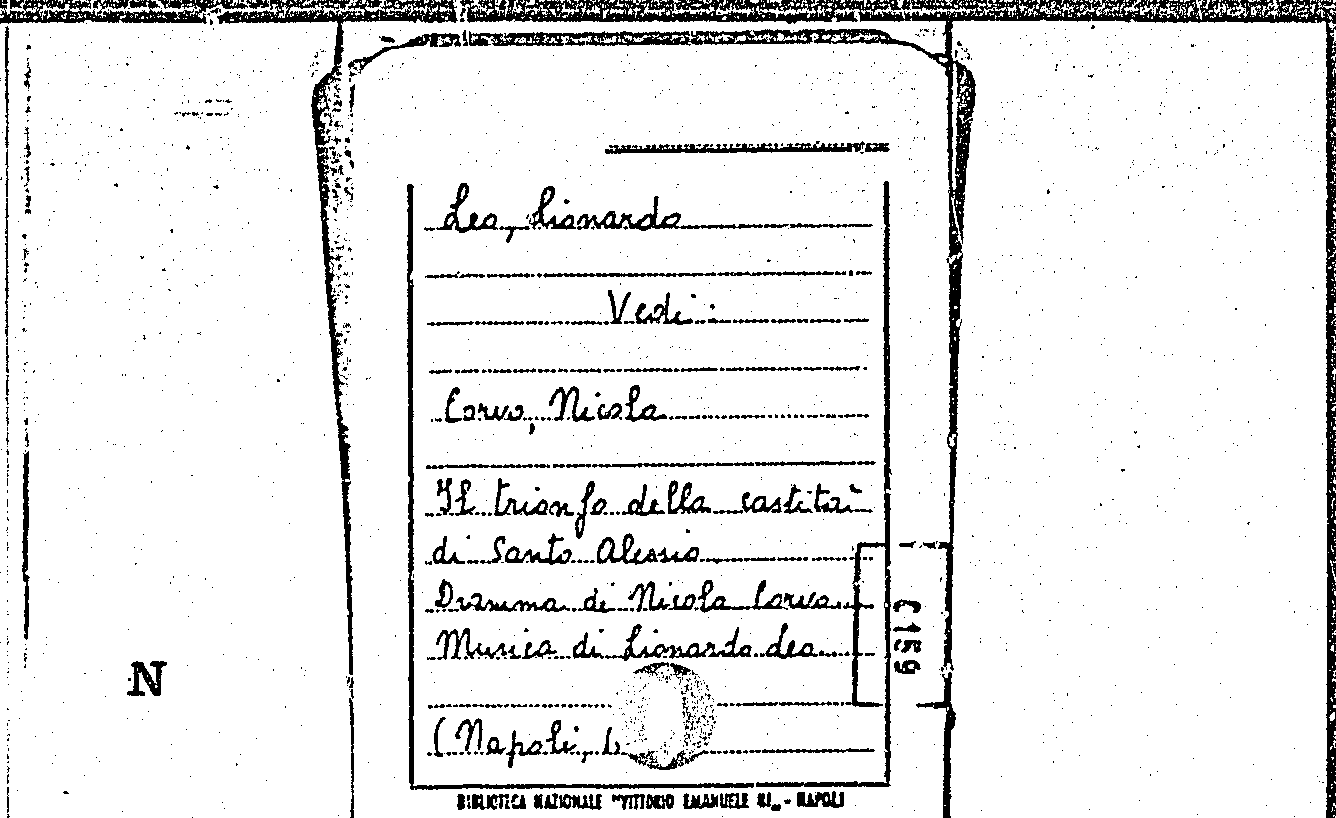 Leo, Lionardo
Vedi:
Corvo, Nicola
Il trionfo della castità
di Santo Alessio
Dramma di Nicola Corvo
Musica di Lionardo Leo
(Napoli, 1
BIBLIOTECA NAZIONALE "VITTORIO EMANUELE III„ - NAPOLI
C159
N